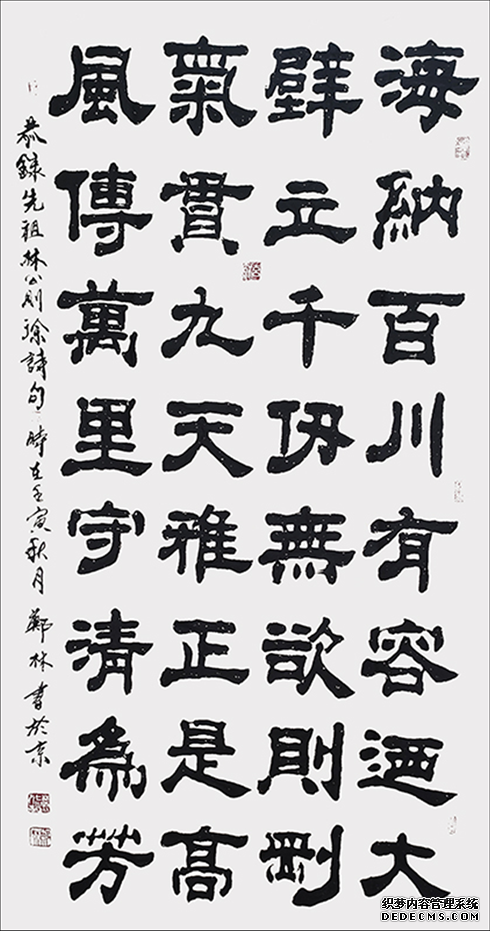 海納百川有容迺大
壁立千仞無欲則剛
氣貫九天雅正是高
風傳萬里守清為芳
恭錄先祖林公則徐詩句時在壬寅秋月鄭林書於京
织梦内容管理系统
DEDECMS.COM